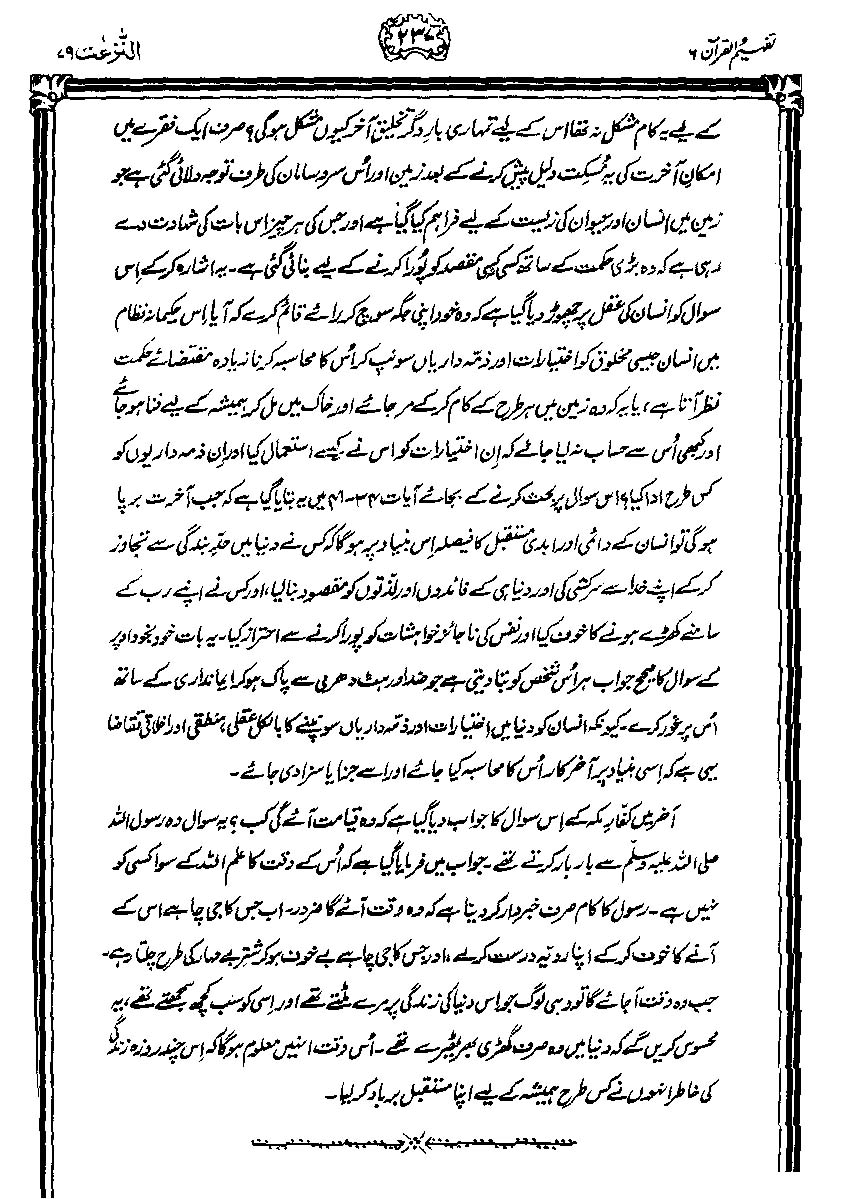 تفہیم القرآن ۶
۲۳۷
النّٰزعٰت ۷۹
کے لیے یہ کام مشکل نہ تھا اس کے لیے تمہاری بارِ دگر تخلیق آخر کیوں مشکل ہوگی؟ صرف ایک فقرے میں
امکانِ آخرت کی یہ مُسکِت دلیل پیش کرنے کے بعد زمین اور اُس سروسامان کی طرف توجہ دلائی گئی ہے جو
زمین میں انسان اور حیوان کی زیست کے لیے فراہم کیا گیا ہے اور جس کی ہر چیز اس بات کی شہادت دے
رہی ہے کہ وہ بڑی حکمت کے ساتھ کسی کسی مقصد کو پُورا کرنے کے لیے بنائی گئی ہے۔ یہ اشارہ کر کے اِس
سوال کو انسان کی عقل پر چھوڑ دیا گیا ہے کہ وہ خود اپنی جگہ سوچ کر رائے قائم کرے کہ آیا اِس حکیمانہ نظام
میں انسان جیسی مخلوق کو اختیارات اور ذمہ داریاں سونپ کر اُس کا محاسبہ کرنا زیادہ مقتضائے حکمت
نظر آتا ہے، یا یہ کہ وہ زمین میں ہر طرح کے کام کر کے مر جائے اور خاک میں مل کر ہمیشہ کے لیے فنا ہو جائے
اور کبھی اُس سے حساب نہ لیا جائے کہ اِن اختیارات کو اس نے کیسے استعمال کیا اور اِن ذمہ داریوں کو
کس طرح ادا کیا؟ اس سوال پر بحث کرنے کے بجائے آیات ۳۴-۴۱ میں یہ بتایا گیا ہے کہ جب آخرت برپا
ہوگی تو انسان کے دائمی اور ابدی مستقبل کا فیصلہ اِس بنیاد پر ہوگا کہ کس نے دنیا میں حدِّ بندگی سے تجاوز
کر کے اپنے خدا سے سرکشی کی اور دنیا ہی کے فائدوں اور لذتوں کو مقصود بنا لیا، اور کس نے اپنے رب کے
سامنے کھڑے ہونے کا خوف کیا اور نفس کی ناجائز خواہشات کو پورا کرنے سے احتراز کیا۔ یہ بات خود بخود اوپر
کے سوال کا صحیح جواب ہر اُس شخص کو بتا دیتی ہے جو ضد اور ہٹ دھرمی سے پاک ہو کر ایمانداری کے ساتھ
اُس پر غور کرے۔ کیونکہ انسان کو دنیا میں اختیارات اور ذمہ داریاں سونپنے کا بالکل عقلی، منطقی اور اخلاقی تقاضا
یہی ہے کہ اِسی بنیاد پر آخر کار اُس کا محاسبہ کیا جائے اور اسے جزا یا سزا دی جائے۔
آخر میں کفّارِ مکہ کے اِس سوال کا جواب دیا گیا ہے کہ وہ قیامت آئے گی کب؟ یہ سوال وہ رسول اللہ
صلی اللہ علیہ وسلّم سے بار بار کرتے تھے۔ جواب میں فرمایا گیا ہے کہ اُس کے وقت کا علم اللہ کے سوا کسی کو
نہیں ہے۔ رسول کا کام صرف خبردار کر دینا ہے کہ وہ وقت آئے گا ضرور۔ اب جس کا جی چاہے اس کے
آنے کا خوف کر کے اپنا رویّہ درست کر لے، اور جس کا جی چاہے بے خوف ہو کر شترِ بے مہار کی طرح چلتا رہے۔
جب وہ وقت آجائے گا تو وہی لوگ جو اِس دنیا کی زندگی پر مرے مٹتے تھے اور اِسی کو سب کچھ سمجھتے تھے، یہ
محسوس کریں گے کہ دنیا میں وہ صرف گھڑی بھر ٹھیرے تھے۔ اُس وقت انہیں معلوم ہوگا کہ اِس چند روزہ زندگی
کی خاطر انہوں نے کس طرح ہمیشہ کے لیے اپنا مستقبل برباد کر لیا۔